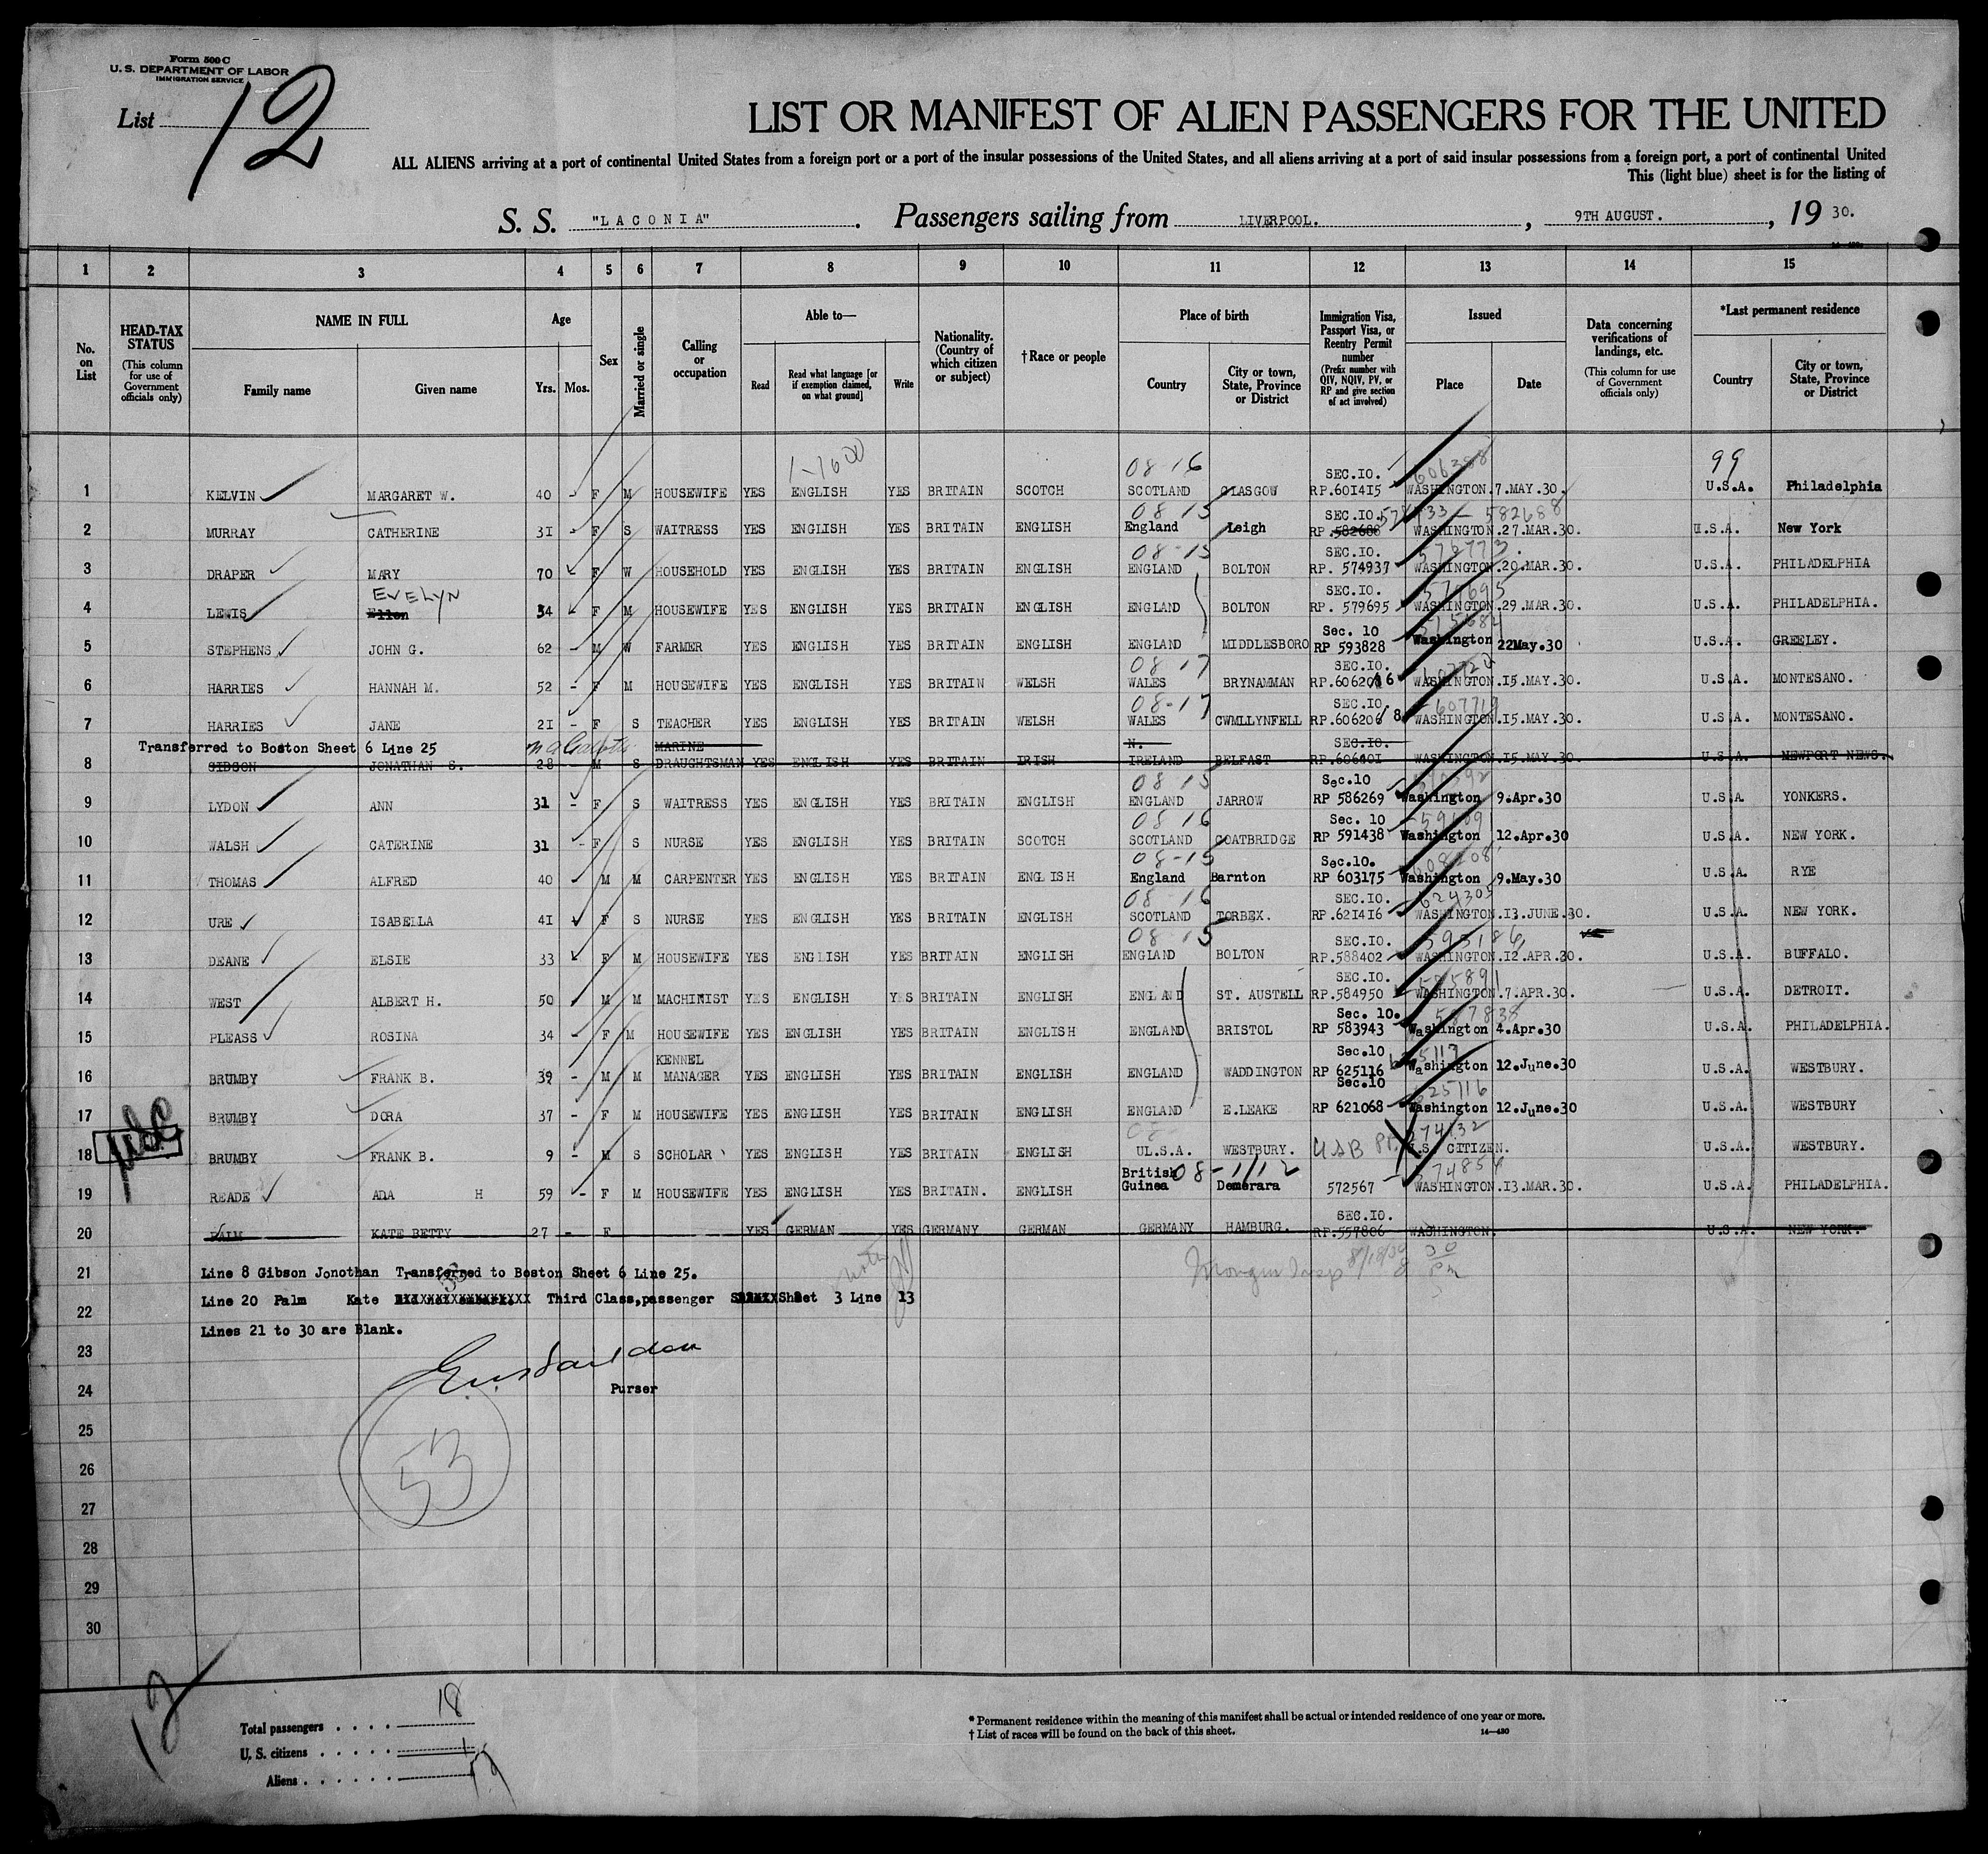 Form 500 C
U. S. DEPARTMENT OF LABOR
IMMIGRATION SERVICE
List 12
LIST OR MANIFEST OF ALIEN PASSENGERS FOR THE UNITED
ALL ALIENS arriving at a port of continental United States from a foreign port or a port of the insular possessions of the United States, and all aliens arriving at a port of said insular possessions from a foreign port, a port of continental United
This (light blue) sheet is for the listing of
S. S. "LACONIA". Passengers sailing from LIVERPOOL. , 9TH AUGUST. , 19 30.
1 2 3 4 5 6 7 8 9 10 11 12 13 14 15
No. on List
HEAD-TAX STATUS (This column for use of Government officials only)
NAME IN FULL Family name Given name
Age Yrs. Mos.
Sex
Married or single
Calling or occupation
Able to— Read Read what language [or if exemption claimed, on what ground] Write
Nationality. (Country of which citizen or subject)
†Race or people
Place of birth Country City or town, State, Province or District
Immigration Visa, Passport Visa, or Reentry Permit number (Prefix number with QIV, NQIV, PV, or RP and give section of act involved)
Issued Place Date
Data concerning verifications of landings, etc. (This column for use of Government officials only)
*Last permanent residence Country City or town, State, Province or District
08-16 SEC.IO. 99
1 KELVIN MARGARET W. 40 - F M HOUSEWIFE YES ENGLISH YES BRITAIN SCOTCH SCOTLAND GLASGOW RP.601415 WASHINGTON.7.MAY.30. U.S.A. Philadelphia
08-15 SEC.IO. 582688
2 MURRAY CATHERINE 31 - F S WAITRESS YES ENGLISH YES BRITAIN ENGLISH England Leigh RP.582688 WASHINGTON.27.MAR.30. U.S.A. New York
08-15 SEC.IO. 576773.
3 DRAPER MARY 70 F W HOUSEHOLD YES ENGLISH YES BRITAIN ENGLISH ENGLAND BOLTON RP. 574937 WASHINGTON.20.MAR.30. U.S.A. PHILADELPHIA
EVELYN SEC.IO. 579695
4 LEWIS Ellen 34 F M HOUSEWIFE YES ENGLISH YES BRITAIN ENGLISH ENGLAND BOLTON RP. 579695 WASHINGTON.29.MAR.30. U.S.A. PHILADELPHIA.
Sec. 10
5 STEPHENS JOHN G. 62 - M W FARMER YES ENGLISH YES BRITAIN ENGLISH ENGLAND MIDDLESBORO RP 593828 Washington 22May.30 U.S.A. GREELEY.
08-17 SEC.IO.
6 HARRIES HANNAH M. 52 - F M HOUSEWIFE YES ENGLISH YES BRITAIN WELSH WALES BRYNAMMAN RP.606208 WASHINGTON.15.MAY.30. U.S.A. MONTESANO.
08-17 SEC.IO. 607719
7 HARRIES JANE 21 - F S TEACHER YES ENGLISH YES BRITAIN WELSH WALES CWMLLYNFELL RP.606206 WASHINGTON.15.MAY.30. U.S.A. MONTESANO.
Transferred to Boston Sheet 6 Line 25 MARINE N. SEC.IO.
8 GIBSON JONATHAN S. 28 M S DRAUGHTSMAN YES ENGLISH YES BRITAIN IRISH IRELAND BELFAST RP.606401 WASHINGTON.15.MAY.30 U.S.A. NEWPORT NEWS.
08-15 Sec.10
9 LYDON ANN 31 - F S WAITRESS YES ENGLISH YES BRITAIN ENGLISH ENGLAND JARROW RP 586269 Washington 9.Apr.30 U.S.A. YONKERS.
08-16 Sec. 10
10 WALSH CATERINE 31 - F S NURSE YES ENGLISH YES BRITAIN SCOTCH SCOTLAND COATBRIDGE RP 591438 Washington 12.Apr.30 U.S.A. NEW YORK.
08-15 Sec.10. 608208
11 THOMAS ALFRED 40 M M CARPENTER YES ENGLISH YES BRITAIN ENGLISH England Barnton RP 603175 Washington 9.May.30 U.S.A. RYE
08-16 SEC.IO. 624305
12 URE ISABELLA 41 F S NURSE YES ENGLISH YES BRITAIN ENGLISH SCOTLAND TORBEX. RP.621416 WASHINGTON.13.JUNE.30. U.S.A. NEW YORK.
08-15 SEC.IO. 595186
13 DEANE ELSIE 33 F M HOUSEWIFE YES ENGLISH YES BRITAIN ENGLISH ENGLAND BOLTON RP.588402 WASHINGTON.12.APR.30. U.S.A. BUFFALO.
SEC.IO.
14 WEST ALBERT H. 50 M M MACHINIST YES ENGLISH YES BRITAIN ENGLISH ENGLAND ST. AUSTELL RP.584950 WASHINGTON.7.APR.30. U.S.A. DETROIT.
Sec. 10. 587838
15 PLEASS ROSINA 34 - F M HOUSEWIFE YES ENGLISH YES BRITAIN ENGLISH ENGLAND BRISTOL RP 583943 Washington 4.Apr.30 U.S.A. PHILADELPHIA.
KENNEL Sec.10
16 BRUMBY FRANK B. 39 - M M MANAGER YES ENGLISH YES BRITAIN ENGLISH ENGLAND WADDINGTON RP 625116 Washington 12.June.30 U.S.A. WESTBURY.
Sec.10 625116
17 BRUMBY DORA 37 - F M HOUSEWIFE YES ENGLISH YES BRITAIN ENGLISH ENGLAND E.LEAKE RP 621068 Washington 12.June.30 U.S.A. WESTBURY
08- 274132
18 USC BRUMBY FRANK B. 9 - M S SCHOLAR YES ENGLISH YES BRITAIN ENGLISH UL.S.A. WESTBURY. U.S. CITIZEN. U.S.A. WESTBURY.
British 08-1/12
19 READE ADA H 59 - F M HOUSEWIFE YES ENGLISH YES BRITAIN. ENGLISH Guinea Demerara 572567 WASHINGTON.13.MAR.30. U.S.A. PHILADELPHIA.
SEC.IO.
20 PALM KATE BETTY 27 - F YES GERMAN YES GERMANY GERMAN GERMANY HAMBURG. RP.557806 WASHINGTON. U.S.A. NEW YORK.
21 Line 8 Gibson Jonothan Transferred to Boston Sheet 6 Line 25.
22 Line 20 Palm Kate Third Class,passenger Sheet 3 Line 13
Lines 21 to 30 are Blank.
23
24 Purser
25
26
53
27
28
29
30
12
Total passengers . . . . 18
U. S. citizens . . . . . 1
Aliens . . . . . . 17
* Permanent residence within the meaning of this manifest shall be actual or intended residence of one year or more.
† List of races will be found on the back of this sheet. 14—430